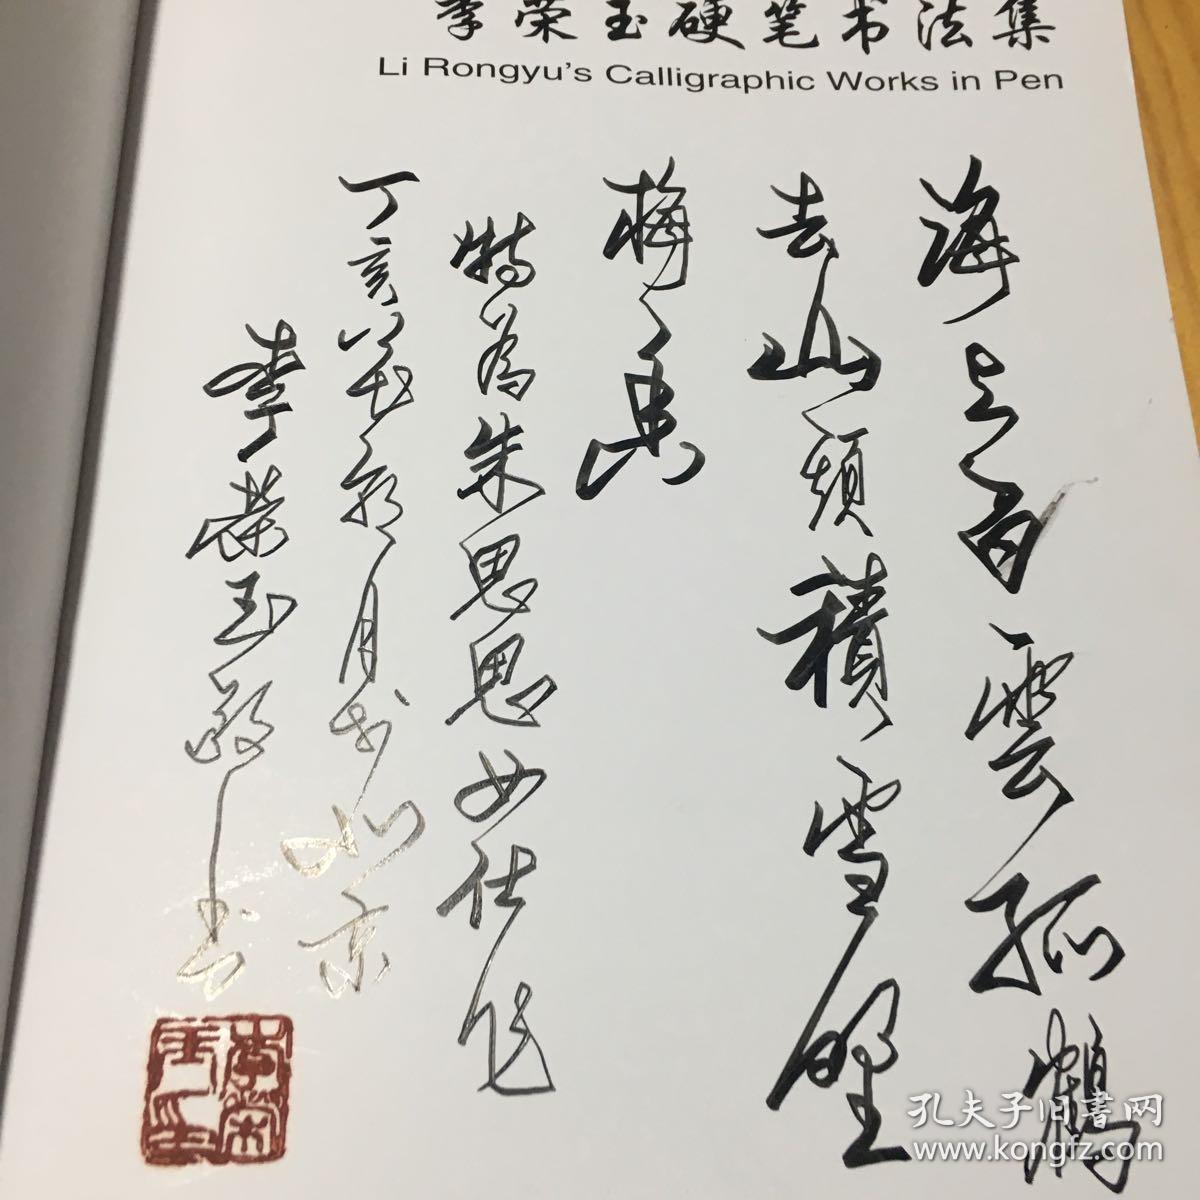 李荣玉硬笔书法集
Li Rongyu's Calligraphic Works in Pen
海上白雲孤鶴
去山頭積雪野
梅香
特為朱思思女仕作
丁亥花朝月於北京
李榮玉敬書
李榮玉印
孔夫子旧書网
www.kongfz.com